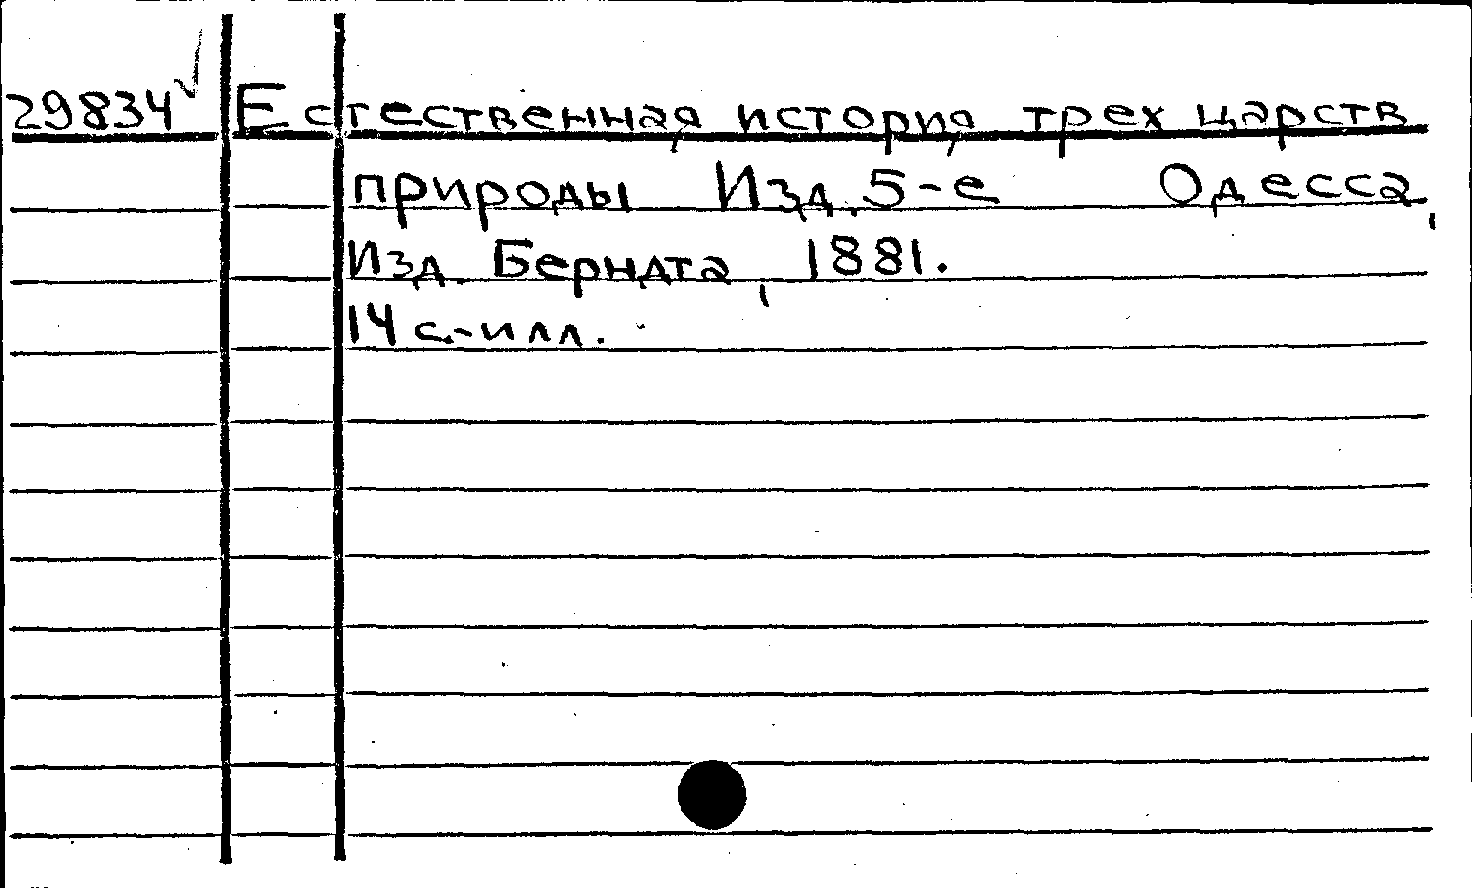 29834 Естественная история трех царств
природы Изд. 5-е Одесса,
Изд. Берндта, 1881.
14 с.-илл.